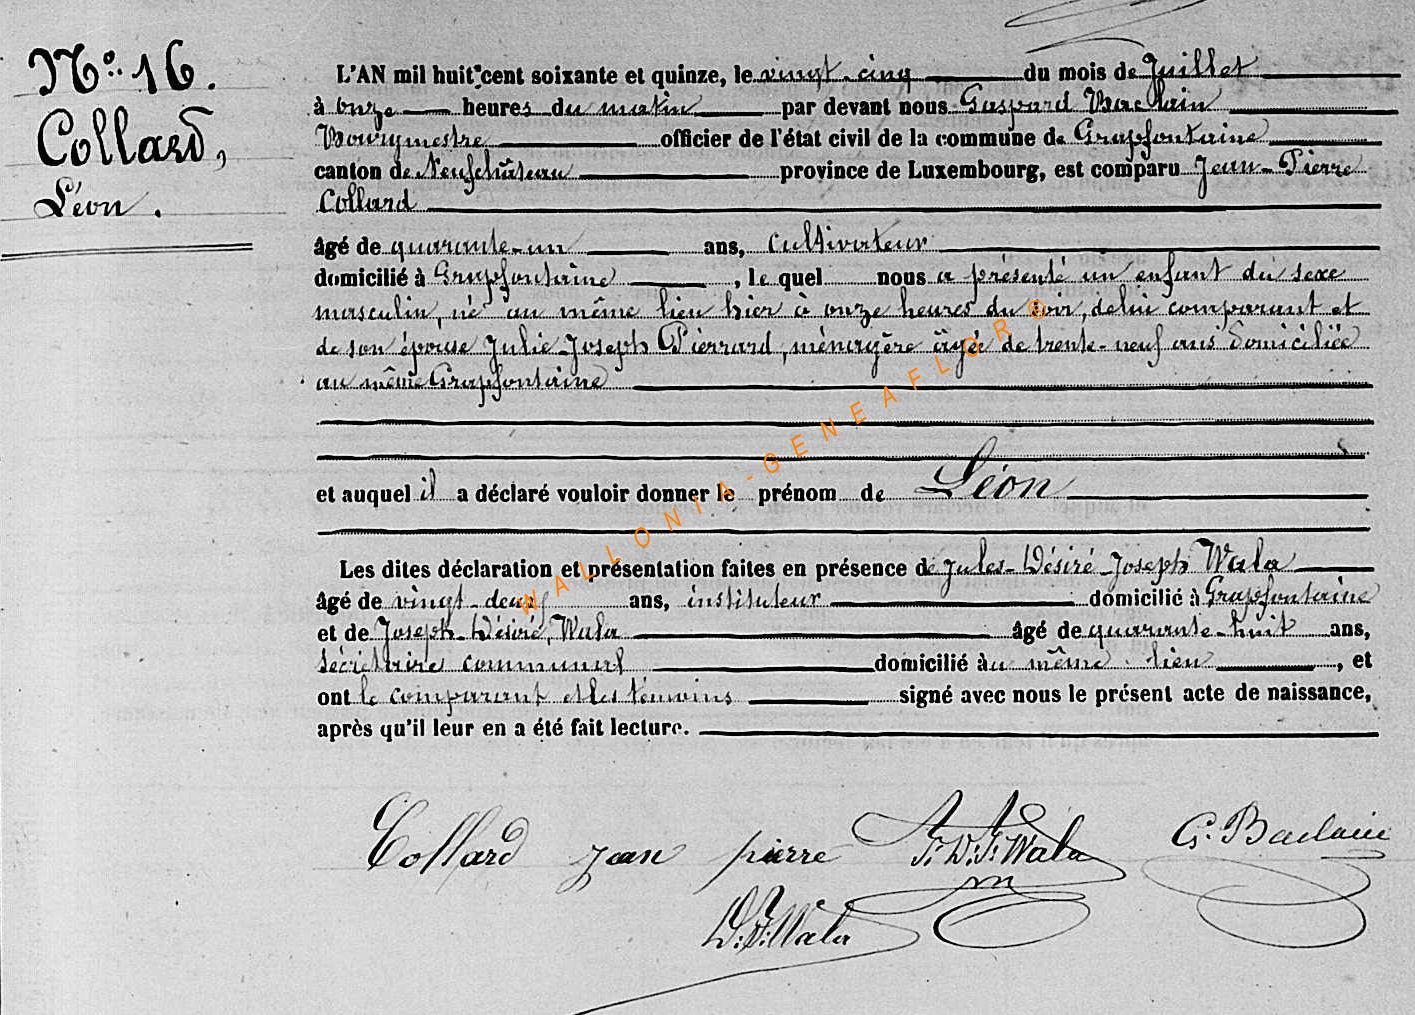 No. 16.
Collard,
Léon.
L'AN mil huit cent soixante et quinze, le vingt-cinq du mois de Juillet
à onze heures du matin par devant nous Gaspard Baclain
Bourgmestre officier de l'état civil de la commune de Grapfontaine
canton de Neufchâteau province de Luxembourg, est comparu Jean-Pierre
Collard
âgé de quarante-un ans, cultivateur
domicilié à Grapfontaine, le quel nous a présenté un enfant du sexe
masculin, né au même lieu hier à onze heures du soir, de lui comparant et
de son épouse Julie-Joseph Pierrard, ménagère âgée de trente-neuf ans domiciliée
au même Grapfontaine
et auquel il a déclaré vouloir donner le prénom de Léon
Les dites déclaration et présentation faites en présence de Jules-Désiré-Joseph Wala
âgé de vingt-deux ans, instituteur domicilié à Grapfontaine
et de Joseph-Désiré, Wala âgé de quarante-huit ans,
secrétaire communal domicilié au même lieu, et
ont le comparant et les témoins signé avec nous le présent acte de naissance,
après qu'il leur en a été fait lecture.
Collard jean pierre J. D. J. Wala G. Baclain
D. J. Wala
WALLONIA-GENEAFLORE